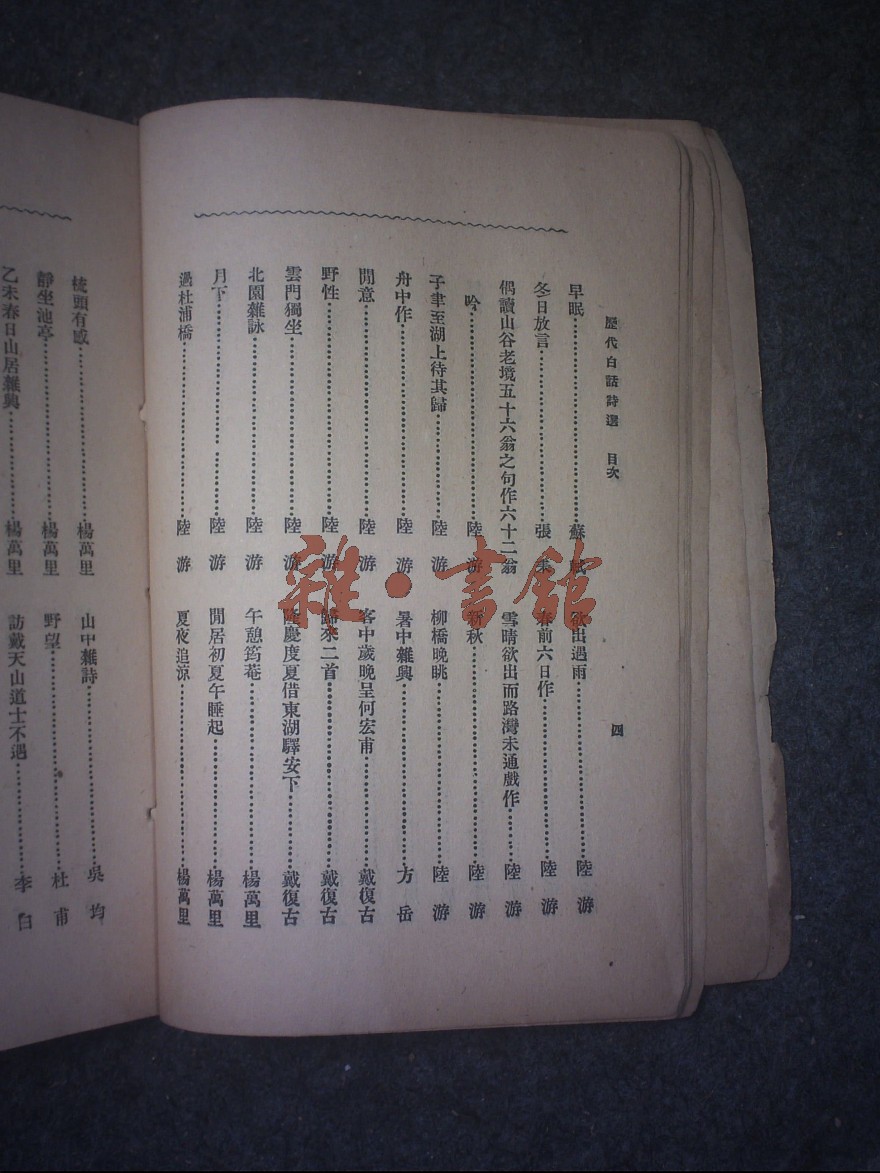 歷代白話詩選 目次 四
早眠……蘇軾
冬日放言……張耒
偶讀山谷老境五十六翁之句作六十二翁
吟……陸游
子聿至湖上待其歸……陸游
舟中作……陸游
閒意……陸游
野性……陸游
雲門獨坐……陸游
北園雜詠……陸游
月下……陸游
過杜浦橋……陸游
欲出遇雨……陸游
春前六日作……陸游
雪晴欲出而路濘未通戲作……陸游
新秋……陸游
柳橋晚眺……陸游
暑中雜興……方岳
客中歲晚呈何宏甫……戴復古
歸來二首……戴復古
隆慶度夏借東湖驛安下……戴復古
午憩筠菴……楊萬里
閒居初夏午睡起……楊萬里
夏夜追涼……楊萬里
梳頭有感……楊萬里
靜坐池亭……楊萬里
乙未春日山居雜興……楊萬里
山中雜詩……吳均
野望……杜甫
訪戴天山道士不遇……李白
雜·書館